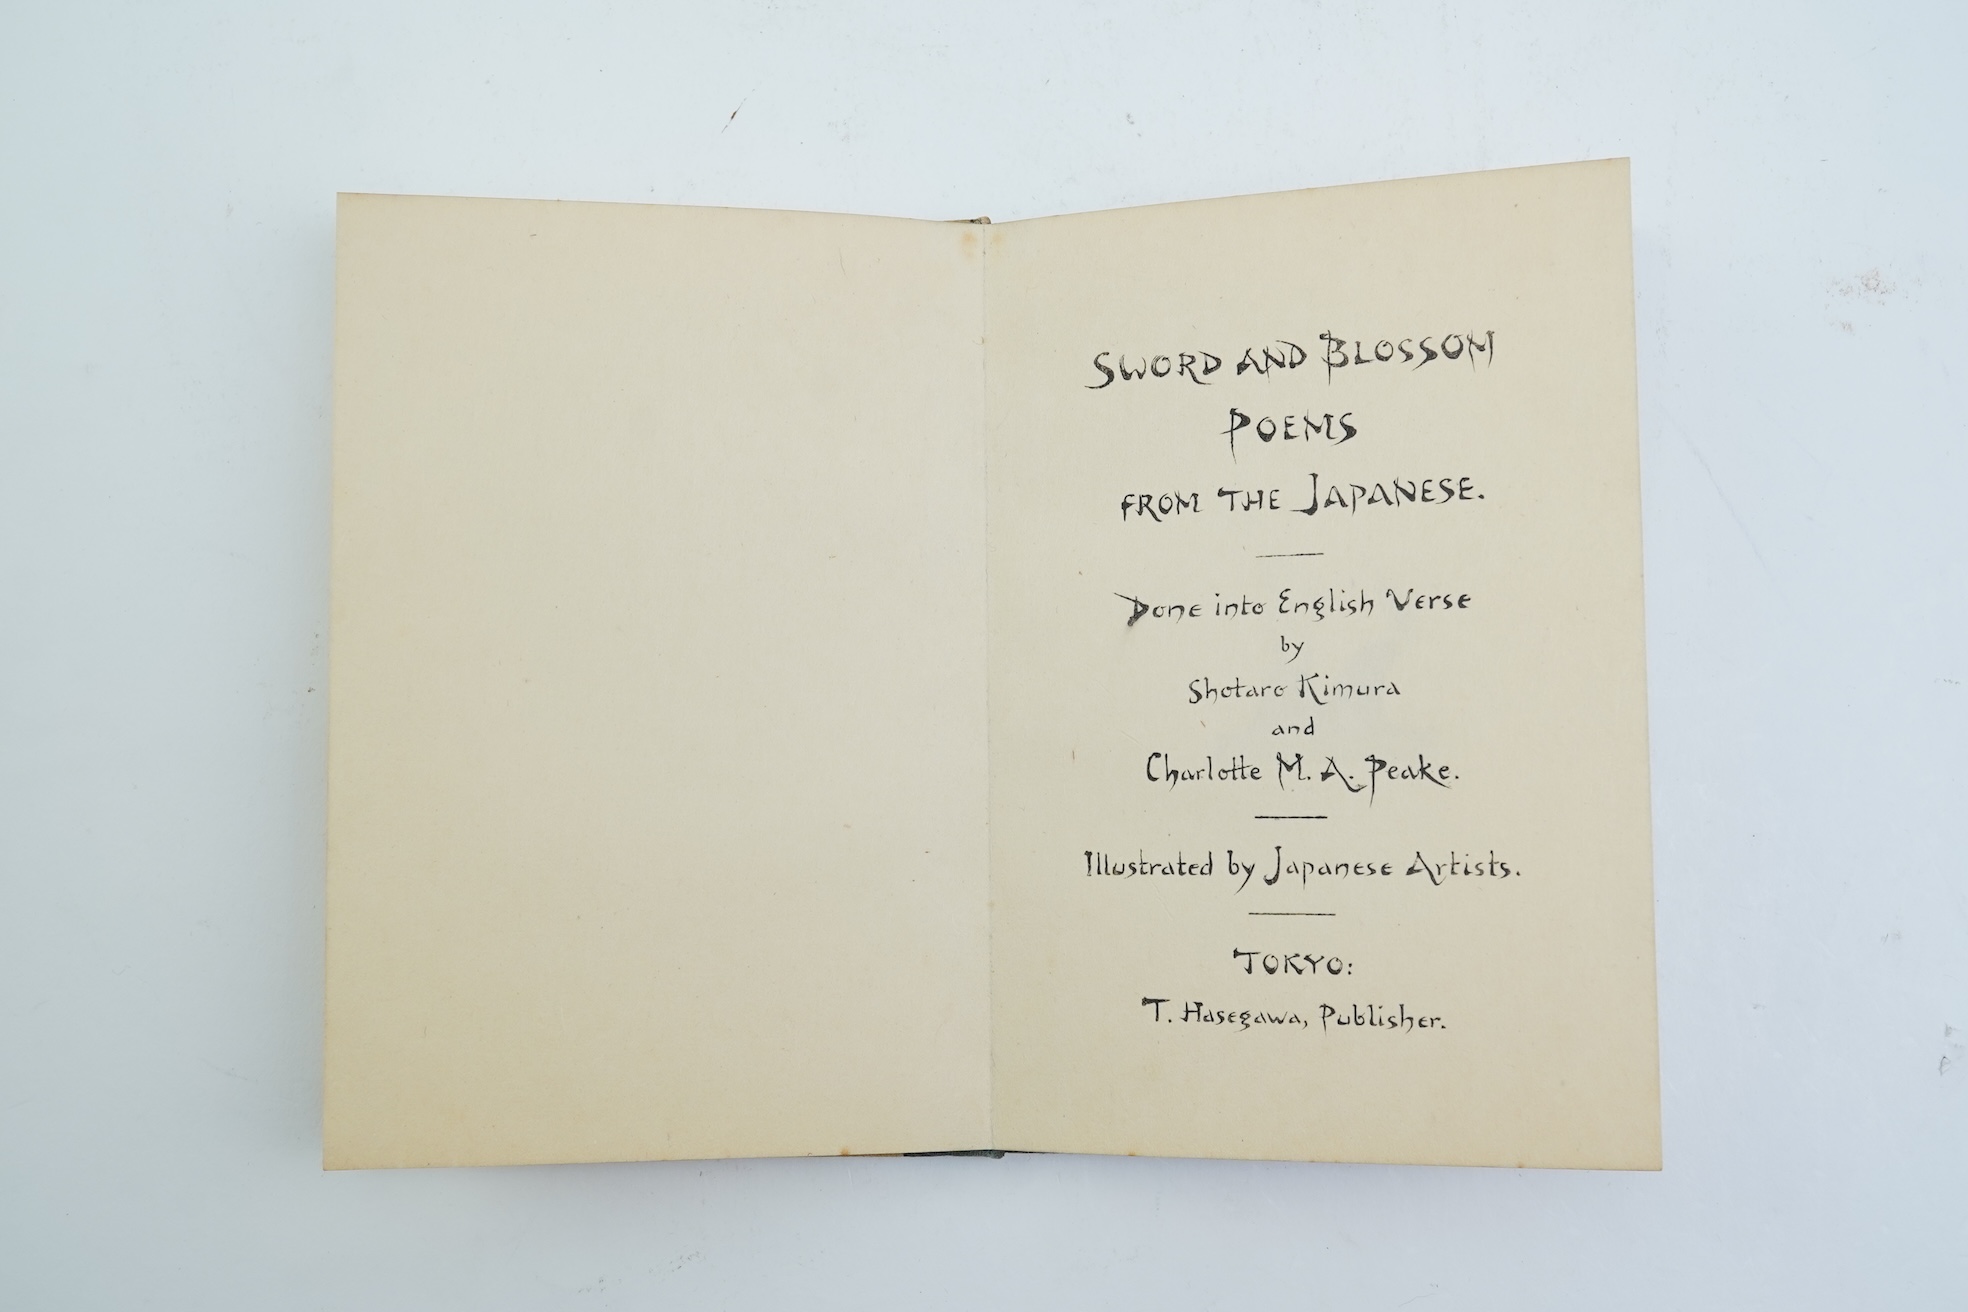 SWORD AND BLOSSOM
POEMS
FROM THE JAPANESE.
Done into English Verse
by
Shotaro Kimura
and
Charlotte M. A. Peake.
Illustrated by Japanese Artists.
TOKYO:
T. Hasegawa, Publisher.